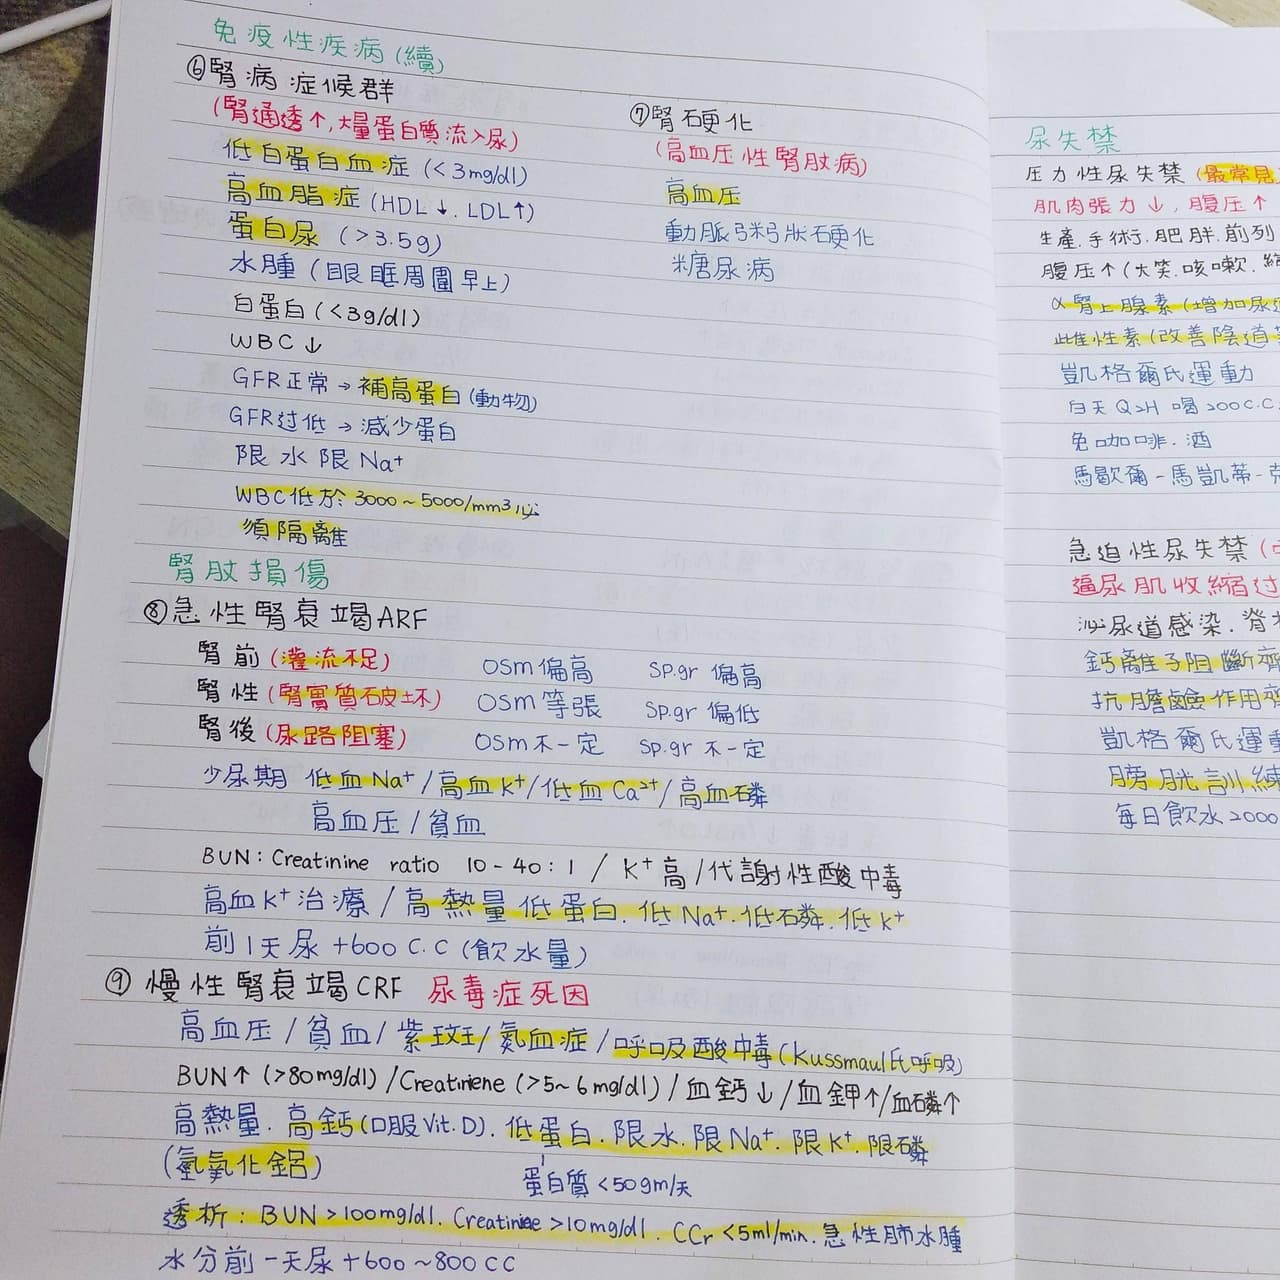 免疫性疾病(續)
⑥腎病症候群
(腎通透↑,大量蛋白質流入尿)
低白蛋白血症 (<3mg/dl)
高血脂症 (HDL↓. LDL↑)
蛋白尿 (>3.5g)
水腫 (眼眶周圍早上)
白蛋白(<3g/dl)
WBC↓
GFR正常→補高蛋白(動物)
GFR过低→減少蛋白
限水限Na⁺
WBC低於3000~5000/mm³必
須隔離
⑦腎硬化
(高血压性腎肢病)
高血压
動脈粥狀硬化
糖尿病
腎肢損傷
⑧急性腎衰竭ARF
腎前(灌流不足) OSm偏高 Sp.gr 偏高
腎性(腎實質破坏) OSm等張 Sp.gr 偏低
腎後(尿路阻塞) OSm不一定 Sp.gr 不一定
少尿期 低血Na⁺/高血K⁺/低血Ca²⁺/高血磷
高血压/貧血
BUN:Creatinine ratio 10-40:1 / K⁺高/代謝性酸中毒
高血K⁺治療/高熱量低蛋白.低Na⁺.低磷.低K⁺
前1天尿+600C.C(飲水量)
⑨慢性腎衰竭CRF 尿毒症死因
高血压/貧血/紫斑/氮血症/呼吸酸中毒(Kussmaul氏呼吸)
BUN↑(>80mg/dl)/Creatiniene(>5~6mg/dl)/血鈣↓/血鉀↑/血磷↑
高熱量.高鈣(口服Vit.D).低蛋白.限水.限Na⁺.限K⁺.限磷
(氫氧化鋁) 蛋白質<50gm/天
透析:BUN>100mg/dl. Creatinine>10mg/dl. CCr<5ml/min.急性肺水腫
水分前一天尿+600~800CC
尿失禁
压力性尿失禁(最常見
肌肉張力↓,腹压↑
生產.手術.肥胖.前列
腹压↑(大笑.咳嗽.
α腎上腺素(增加尿
雌性素(改善陰道
凱格爾氏運動
白天Q2H喝200C.C.
免咖啡.酒
馬歇爾-馬凱蒂-克
急迫性尿失禁(
逼尿肌收縮过
泌尿道感染.脊
鈣離子阻斷劑
抗膽鹼作用劑
凱格爾氏運動
膀胱訓練
每日飲水2000